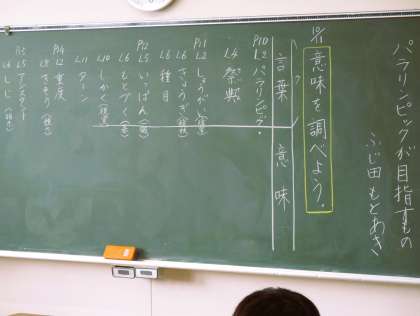 パラリンピックが目指すもの
ふじ田もとあき
意味を調べよう。
言葉 意味
P10 L2 パラリンピック
L4 祭典
P11 L2 しょうがい
L6 きょうぎ
L6 種目
P12 L5 いっぱん
L6 もとづく
L10 しかく
L11 ターン
P14 L2 重度
L5 アシスタント
L6 しじ